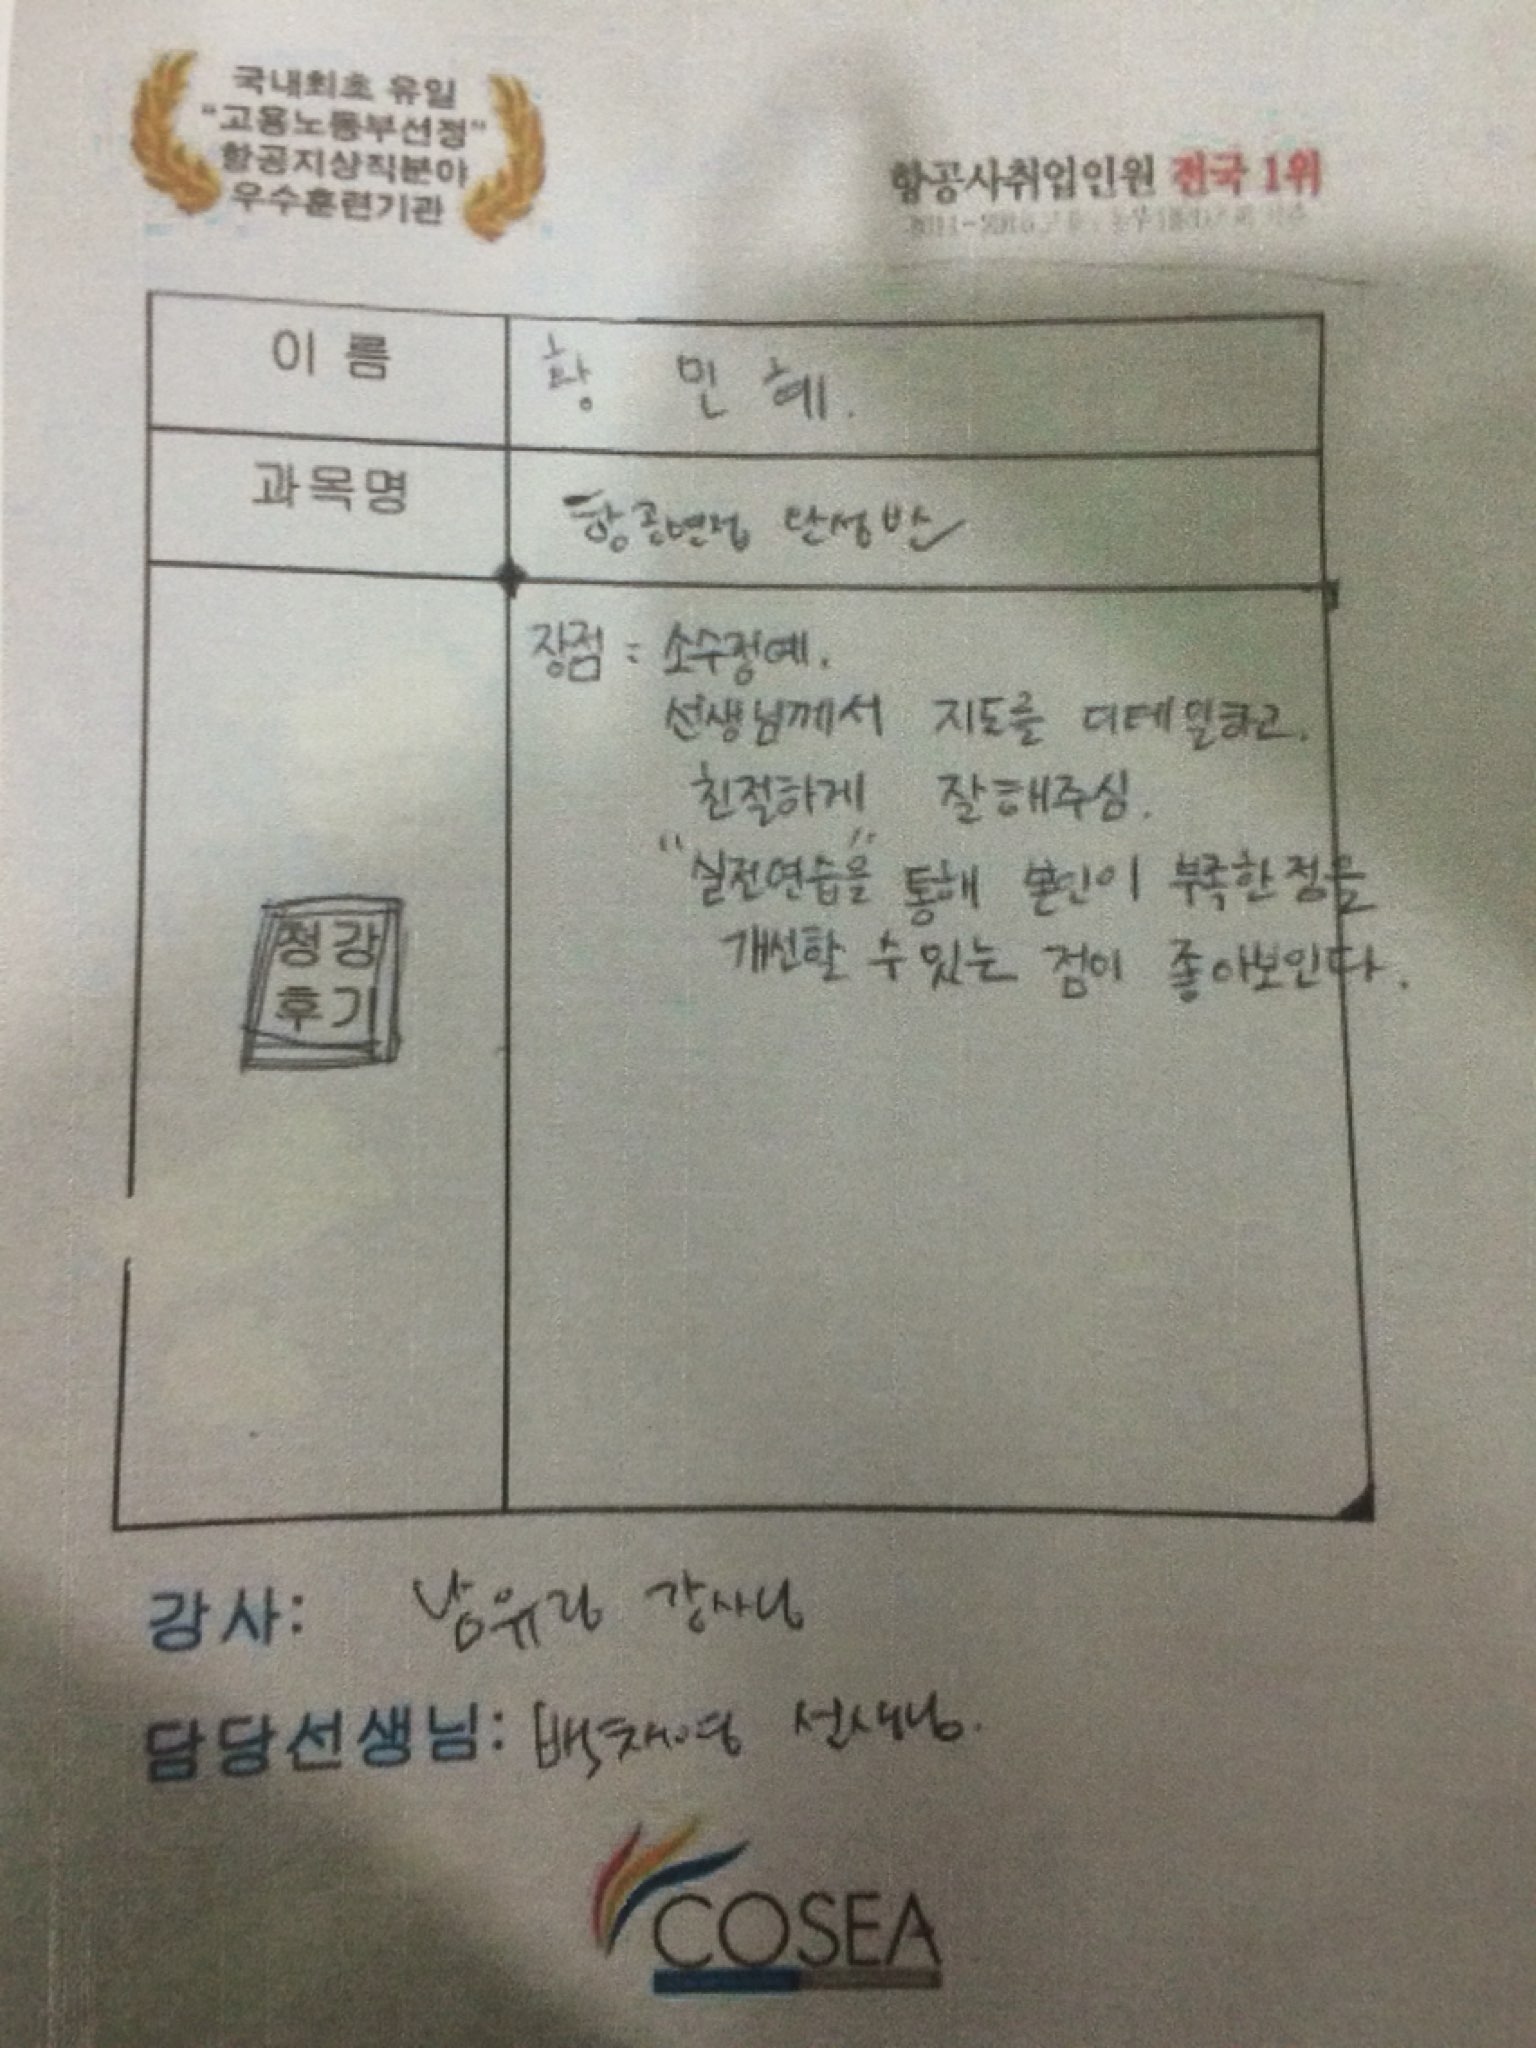 국내최초 유일
"고용노동부선정"
항공지상직분야
우수훈련기관
항공사취업인원 전국 1위
이 름
황 민 혜.
과목명
항공면접 단성반
장점 : 소수정예.
선생님께서 지도를 디테일하고.
친절하게 잘해주심.
"실전연습을" 통해 본인이 부족한점을
개선할 수 있는 점이 좋아보인다.
청강
후기
강사: 남유림 강사님
담당선생님: 백채영 선생님.
COSEA